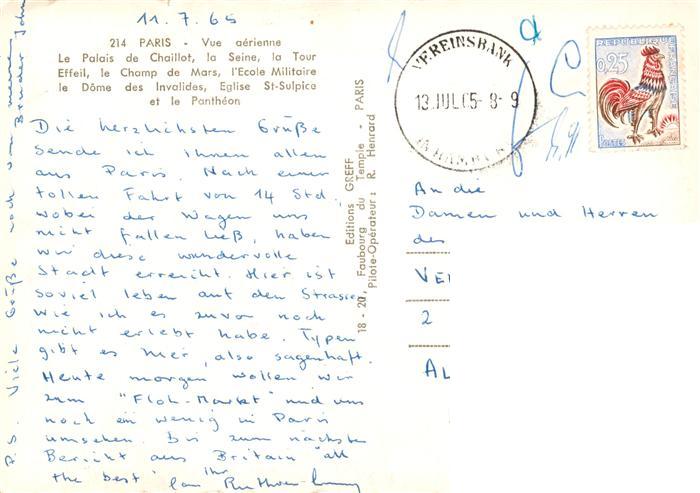 11.7.65
214 PARIS - Vue aérienne
Le Palais de Chaillot, la Seine, la Tour
Effeil, le Champ de Mars, l'Ecole Militaire
le Dôme des Invalides, Eglise St-Sulpice
et le Panthéon
Die herzlichsten Grüße
Sende ich Ihnen allen
aus Paris. Nach einer
tollen Fahrt von 14 Std.
wobei der Wagen uns
nicht fallen ließ, haben
wir diese wundervolle
Stadt erreicht. Hier ist
soviel leben auf den Strassen
wie ich es zuvor noch
nicht erlebt habe. Typen
gibt es hier, also sagenhaft.
Heute morgen wollen wir
zum "Floh-Markt" und uns
noch ein wenig in Paris
umsehen. Bis zum nächsten
Bericht aus Britain "all
the best" Ihr
P.S. Viele Grüße noch von meinem
Bruder John
Editions GREFF
18 - 20, Faubourg du Temple - PARIS
Pilote-Opérateur : R. Henrard
VEREINSBANK
13.JUL65-8-9
IN HAMBURG
REPUBLIQUE FRANÇAISE
0,25
POSTES
An die
Damen und Herren
der
VE
2
AL